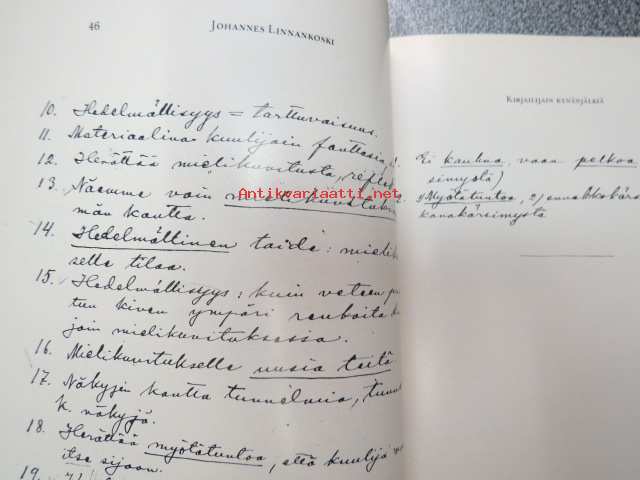 46
JOHANNES LINNANKOSKI
10. Hedelmällisyys = tarttuvaisuus.
11. Materiaalina kuulijain fantasia
12. Herättää mielikuvitusta,
13. Näemme vain
män kautta.
14. Hedelmällinen taide:
selle tilaa.
15. Hedelmällisyys: kuin veteen
tun kiven ympäri renkaita
jain mielikuvituksessa.
16. Mielikuvitukselle uusia teitä
17. Näkyjen kautta tunnelmia,
k. näkyjä.
18. Herättää myötätuntoa, että kuulija
itse sijaan.
19.
Antikvariaatti.net
KIRJAILIJAIN KYNÄNJÄLKIÄ
Ei kauhua, vaan pelkoa
simystä)
1) Myötätuntoa, 2)
kanakärsimystä